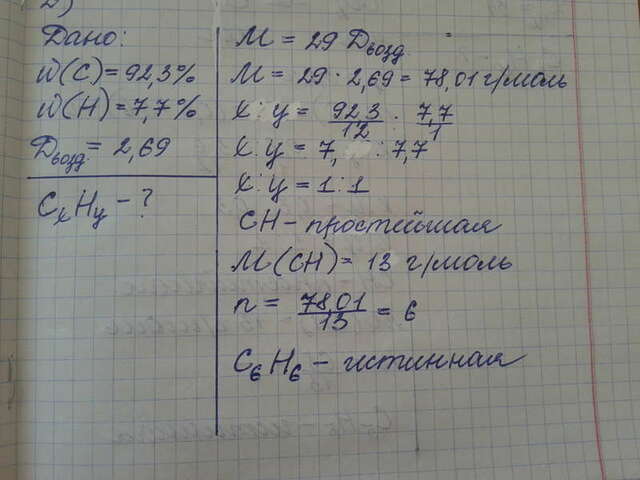 2)
Дано:
w(C) = 92,3%
w(H) = 7,7%
Двозд = 2,69
CxHy - ?
M = 29 Двозд.
M = 29 · 2,69 = 78,01 г/моль
x : y = 92,3/12 : 7,7/1
x : y = 7, : 7,7
x : y = 1 : 1
CH - простейшая
M(CH) = 13 г/моль
n = 78,01/13 = 6
C6H6 - истинная